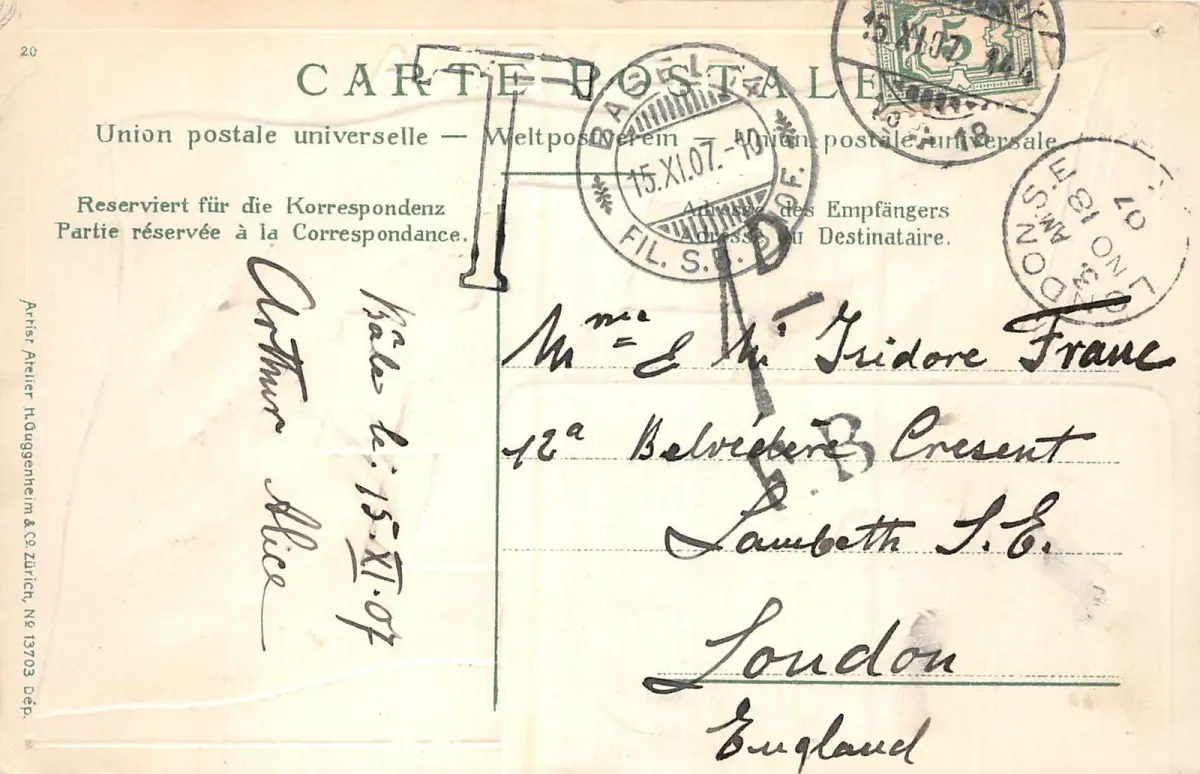 20
CARTE POSTALE
Union postale universelle — Weltpostverein — Union postale universale
Reserviert für die Korrespondenz
Partie réservée à la Correspondance.
Adresse des Empfängers
Adresse du Destinataire.
5
15.XI.07
T
BASEL
15.XI.07.-10
FIL. S.B.BHOF.
LONDON.S.E
3. AM
18 NO
07
1D
F.B
Mme & Mr Isidore Franc
12a Belvédère Cresent
Lambeth S.E.
London
England
Bâle le: 15.XI.07
Arthur Alice
Artist. Atelier H. Guggenheim & Co. Zürich, No 13703 Dép.